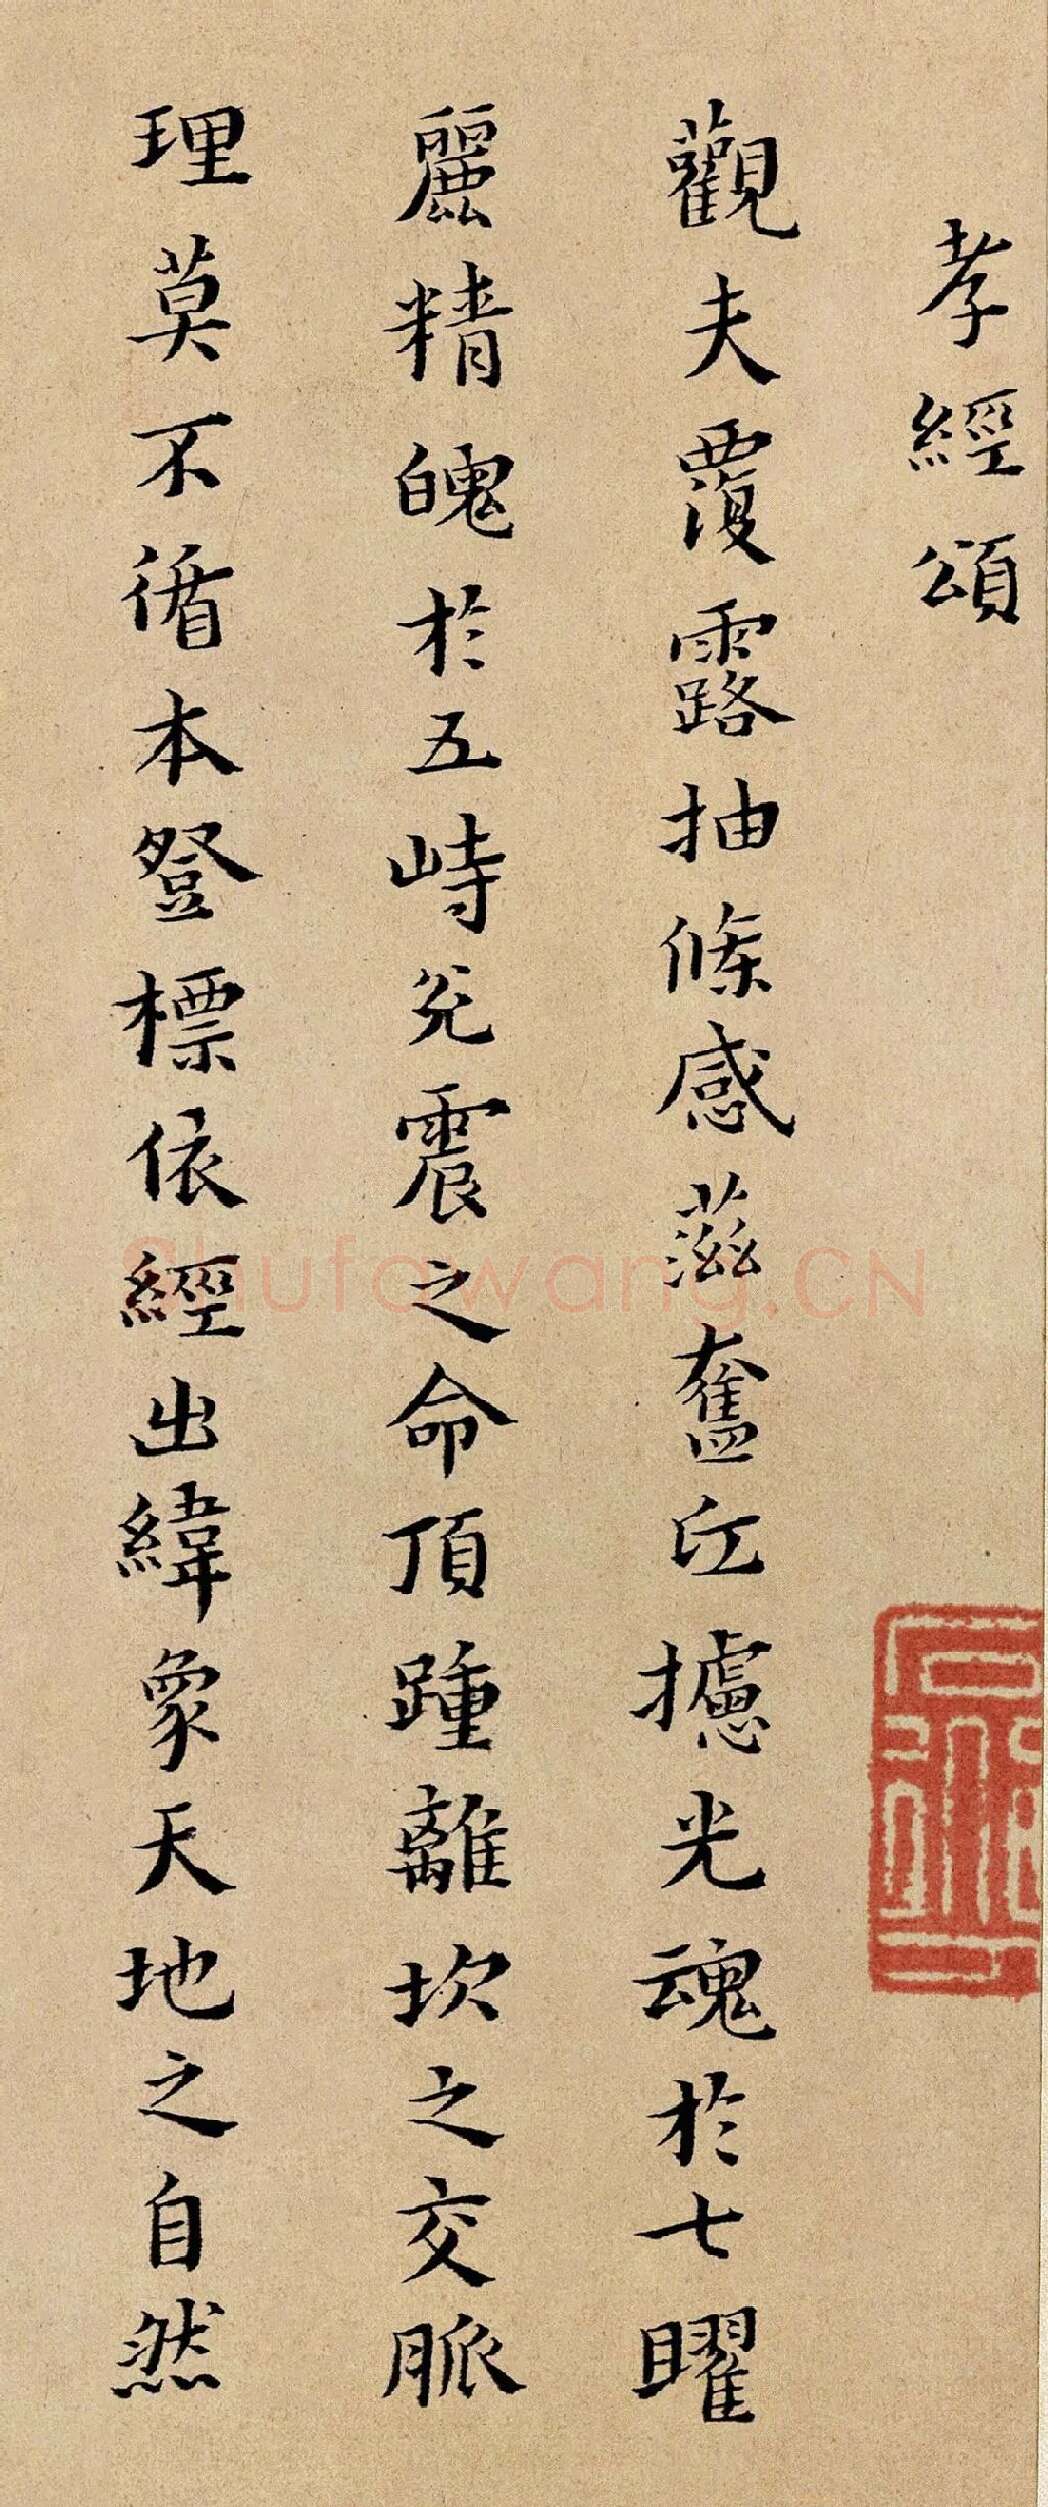 孝經頌
觀夫覆露抽條感滋奮丘攄光魂於七曜
麗精魄於五峙兊震之命頂踵離坎之交脈
理莫不循本登標依經出緯象天地之自然
Shufawang.CN